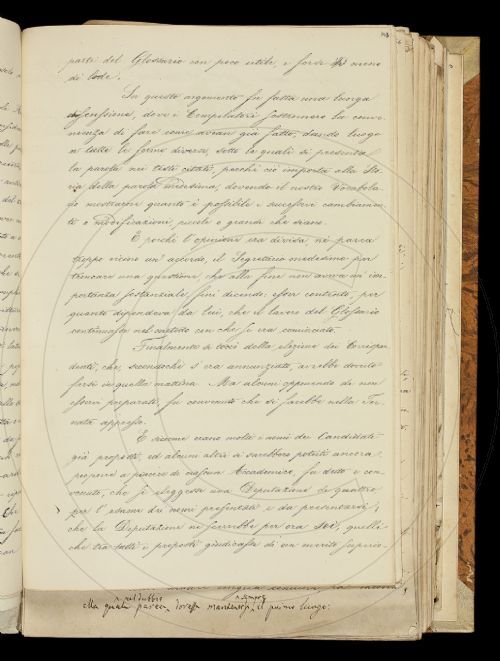 parte del Glossario con poco utile, e forse meno
di lode.
Su questo argomento fu fatta una lunga
discussione, dove i Compilatori sostennero la conve-
nienza di fare come avean già fatto, dando luogo
a tutte le forme diverse, sotto le quali si presenta
la parola nei testi citati, perchè ciò importa alla Sto-
ria della parola medesima, dovendo il nostro Vocabola-
rio mostrare quanto è possibile i successivi cambiamen-
ti o modificazioni, piccole o grandi che siano.
E perchè l'opinione era divisa nè parea
troppo vicino un' accordo, il Segretario medesimo per
troncare una questione, che alla fine non aveva un' im-
portanza sostanziale, finì dicendo esser contento, per
quanto dipendeva da lui, che il lavoro del Glossario
continuasse nel metodo con che si era cominciato.
Finalmente si toccò della elezione dei Corrispon-
denti, che, secondochè s'era annunziato, avrebbe dovuto
farsi in quella mattina. Ma alcuni opponendo di non
essersi preparati, fu convenuto che si farebbe nella Tor-
nata appresso.
E siccome erano molti i nomi dei Candidati
già proposti, ed alcuni altri se ne sarebbero potuti ancora
proporre a piacere di ciascun Accademico, fu detto e con-
venuto, che si eleggesse una Deputazione di quattro
per l'esame dei nomi presentati e da presentarsi;
che la Deputazione ne scerrebbe per ora sei, quelli
che tra tutti i proposti giudicasse di un merito superio-
nel dubbio n sempre
alla quale pareva dovesse mantenersi il primo luogo.